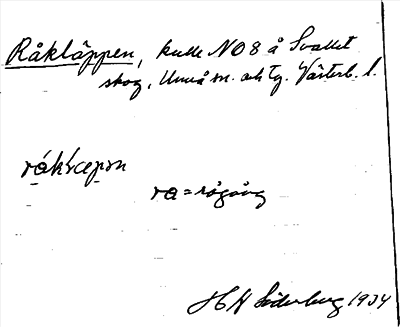 Råkläppen, kulle NO8 å Svallet
skog, Umeå sn. och tg. Västerb. l.
råk
ra = rågång
H Söderberg 1934